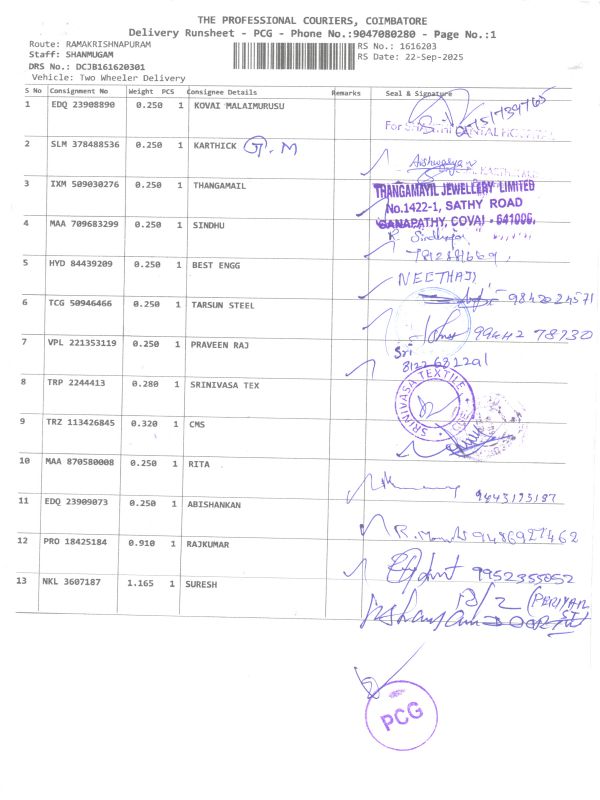 THE PROFESSIONAL COURIERS, COIMBATORE
Delivery Runsheet - PCG - Phone No.:9047080280 - Page No.:1
Route: RAMAKRISHNAPURAM RS No.: 1616203
Staff: SHANMUGAM RS Date: 22-Sep-2025
DRS No.: DCJB161620301
Vehicle: Two Wheeler Delivery
S No Consignment No Weight PCS Consignee Details Remarks Seal & Signature
1 EDQ 23908890 0.250 1 KOVAI MALAIMURUSU
For DENTAL HOSPITAL
2 SLM 378488536 0.250 1 KARTHICK G.M
Aishwarya
3 IXM 509030276 0.250 1 THANGAMAIL
THANGAMAYIL JEWELLERY LIMITED
No.1422-1, SATHY ROAD
GANAPATHY, COVAI - 641006.
4 MAA 709683299 0.250 1 SINDHU
R. Sindhuja
5 HYD 84439209 0.250 1 BEST ENGG
NEETHAJI
9842024571
6 TCG 50946466 0.250 1 TARSUN STEEL
99442 78730
7 VPL 221353119 0.250 1 PRAVEEN RAJ
Sri
8122682291
8 TRP 2244413 0.280 1 SRINIVASA TEX
SRINIVASA TEXTILE
9 TRZ 113426845 0.320 1 CMS
10 MAA 870580008 0.250 1 RITA
9443195187
11 EDQ 23909073 0.250 1 ABISHANKAN
9486927462
12 PRO 18425184 0.910 1 RAJKUMAR
9952355052
13 NKL 3607187 1.165 1 SURESH
2 (PERIYAR
PCG